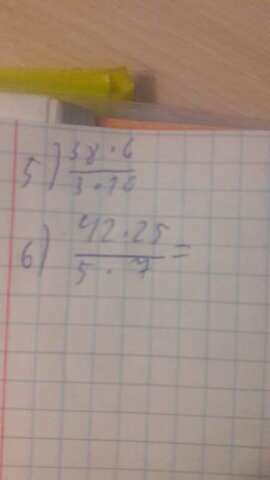 5) 38 · 6
3 · 16
6) 42 · 25 =
5 · 7